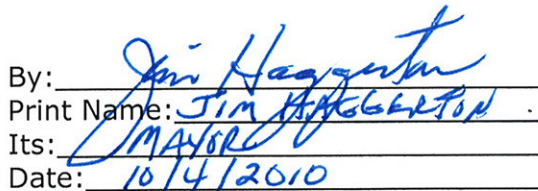 By: Jim Haggerton
Print Name: JIM HAGGERTON
Its: MAYOR
Date: 10/4/2010